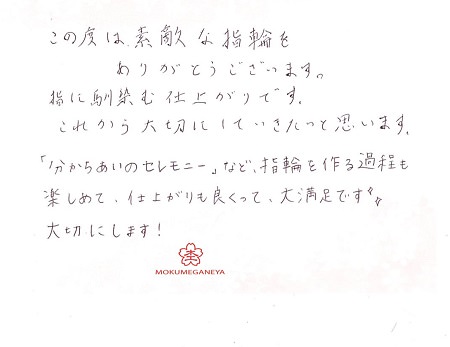 この度は素敵な指輪を
ありがとうございます。
指に馴染む仕上がりです。
これから大切にしていきたいと思います。
「分かちあいのセレモニー」など、指輪を作る過程も
楽しめて、仕上がりも良くって、大満足です〃
大切にします！
MOKUMEGANEYA